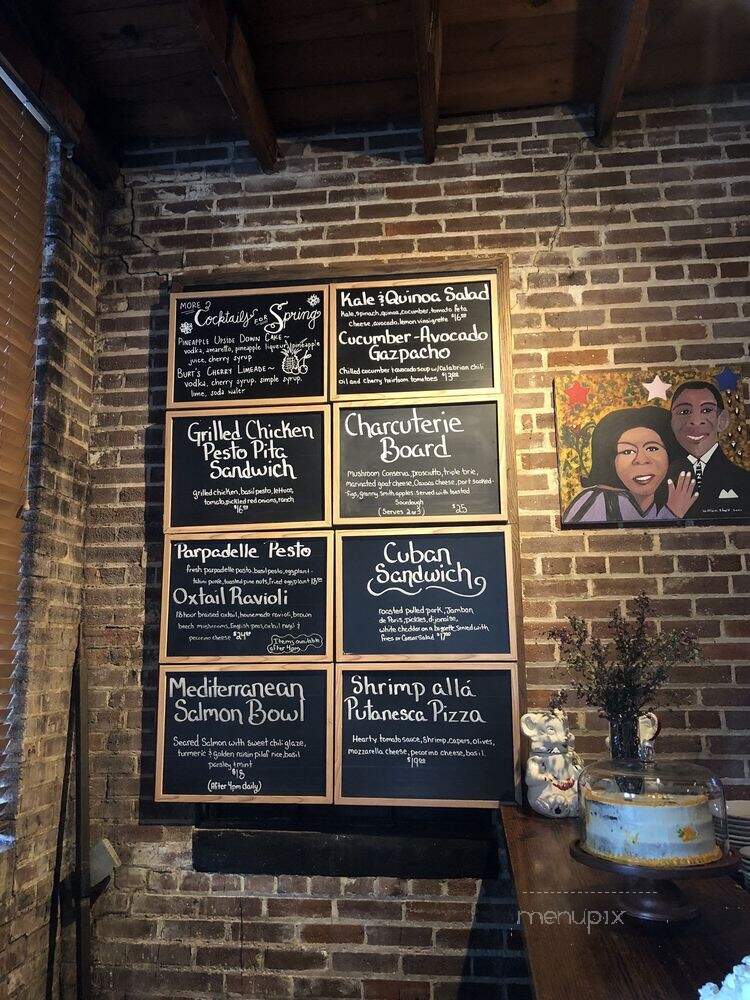 MORE
Cocktails FOR Spring
PINEAPPLE UPSIDE DOWN CAKE ~
vodka, amaretto, pineapple liqueur, pineapple
juice, cherry syrup
BURT'S CHERRY LIMEADE ~
vodka, cherry syrup, simple syrup,
lime, soda water
Kale & Quinoa Salad
Kale, spinach, quinoa, cucumber, tomato feta
cheese, avocado, lemon vinaigrette $16.00
Cucumber-Avocado
Gazpacho
Chilled cucumber & avocado soup w/Calabrian chili
oil and cherry heirloom tomatoes $13.00
Grilled Chicken
Pesto Pita
Sandwich
grilled chicken, basil pesto, lettuce,
tomato, pickled red onions, ranch
$16.00
Charcuterie
Board
Mushroom Conserva, prosciutto, triple brie,
marinated goat cheese, Oaxaca cheese, port soaked
figs, granny smith apples. served with toasted
Sourdough
(Serves 2 or 3) $25
Parpadelle Pesto
fresh parpadelle pasta, basil pesto, eggplant-
tahini purée, toasted pine nuts, fried eggplant
Oxtail Ravioli
18 hour braised oxtail, housemade ravioli, brown
beech mushrooms, English peas, oxtail ragu &
pecorino cheese $24.00
(Items available
after 4pm)
Cuban
Sandwich
roasted pulled pork, Jambon
de Paris, pickles, dijonaise,
white cheddar on a baguette. Served with
fries or Caesar Salad $17.00
Mediterranean
Salmon Bowl
Seared Salmon with sweet chili glaze,
turmeric & golden raisin pilaf rice, basil
parsley & mint
$18
(After 4pm daily)
Shrimp allá
Putanesca Pizza
Hearty tomato sauce, Shrimp, capers, olives,
mozzarella cheese, pecorino cheese, basil.
$19.00
menupix